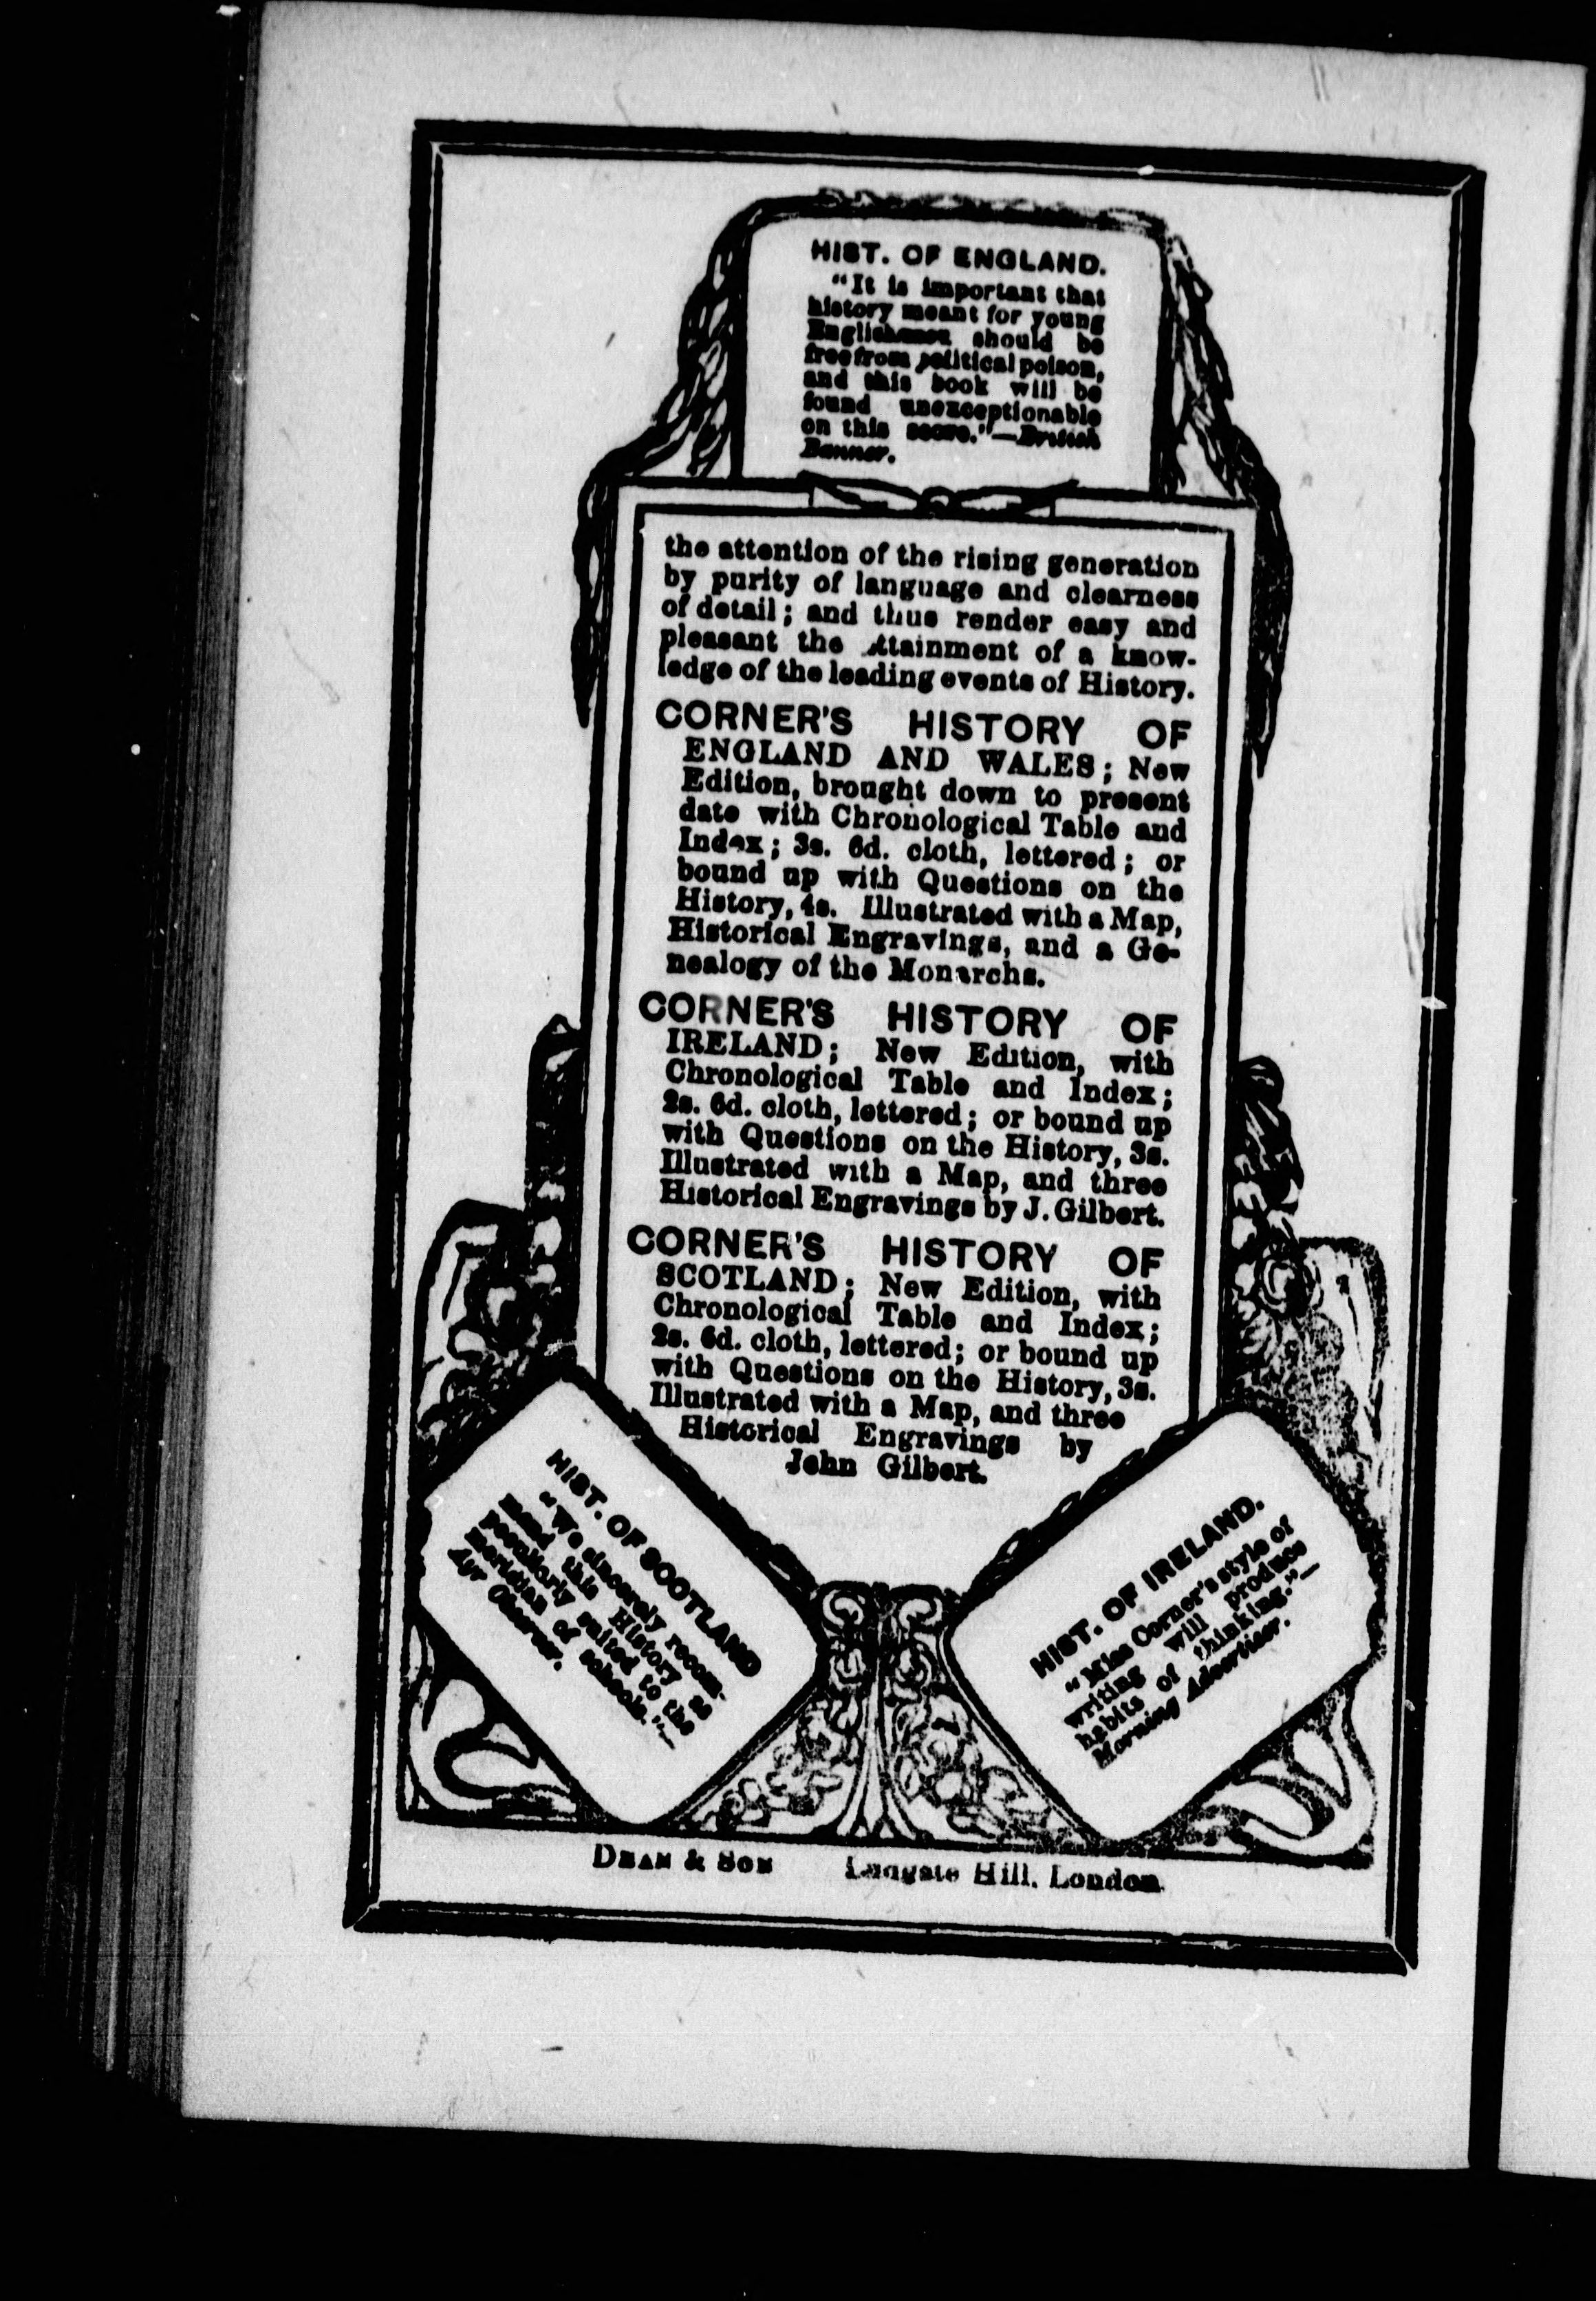 HIST. OF ENGLAND.
"It is important that
history meant for young
Englishmen should be
free from political poison,
and this book will be
found unexceptionable
on this score."—British
Banner.
the attention of the rising generation
by purity of language and clearness
of detail; and thus render easy and
pleasant the attainment of a know-
ledge of the leading events of History.
CORNER'S HISTORY OF
ENGLAND AND WALES; New
Edition, brought down to present
date with Chronological Table and
Index; 3s. 6d. cloth, lettered; or
bound up with Questions on the
History, 4s. Illustrated with a Map,
Historical Engravings, and a Ge-
nealogy of the Monarchs.
CORNER'S HISTORY OF
IRELAND; New Edition, with
Chronological Table and Index;
2s. 6d. cloth, lettered; or bound up
with Questions on the History, 3s.
Illustrated with a Map, and three
Historical Engravings by J. Gilbert.
CORNER'S HISTORY OF
SCOTLAND; New Edition, with
Chronological Table and Index;
2s. 6d. cloth, lettered; or bound up
with Questions on the History, 3s.
Illustrated with a Map, and three
Historical Engravings by
John Gilbert.
HIST. OF SCOTLAND
"We sincerely recom-
mend this History as
peculiarly suited to the
meridian of schools."—
Ayr Observer.
HIST. OF IRELAND.
"Miss Corner's style of
writing will produce
habits of thinking."—
Morning Advertiser.
DEAN & SON Ludgate Hill, London.